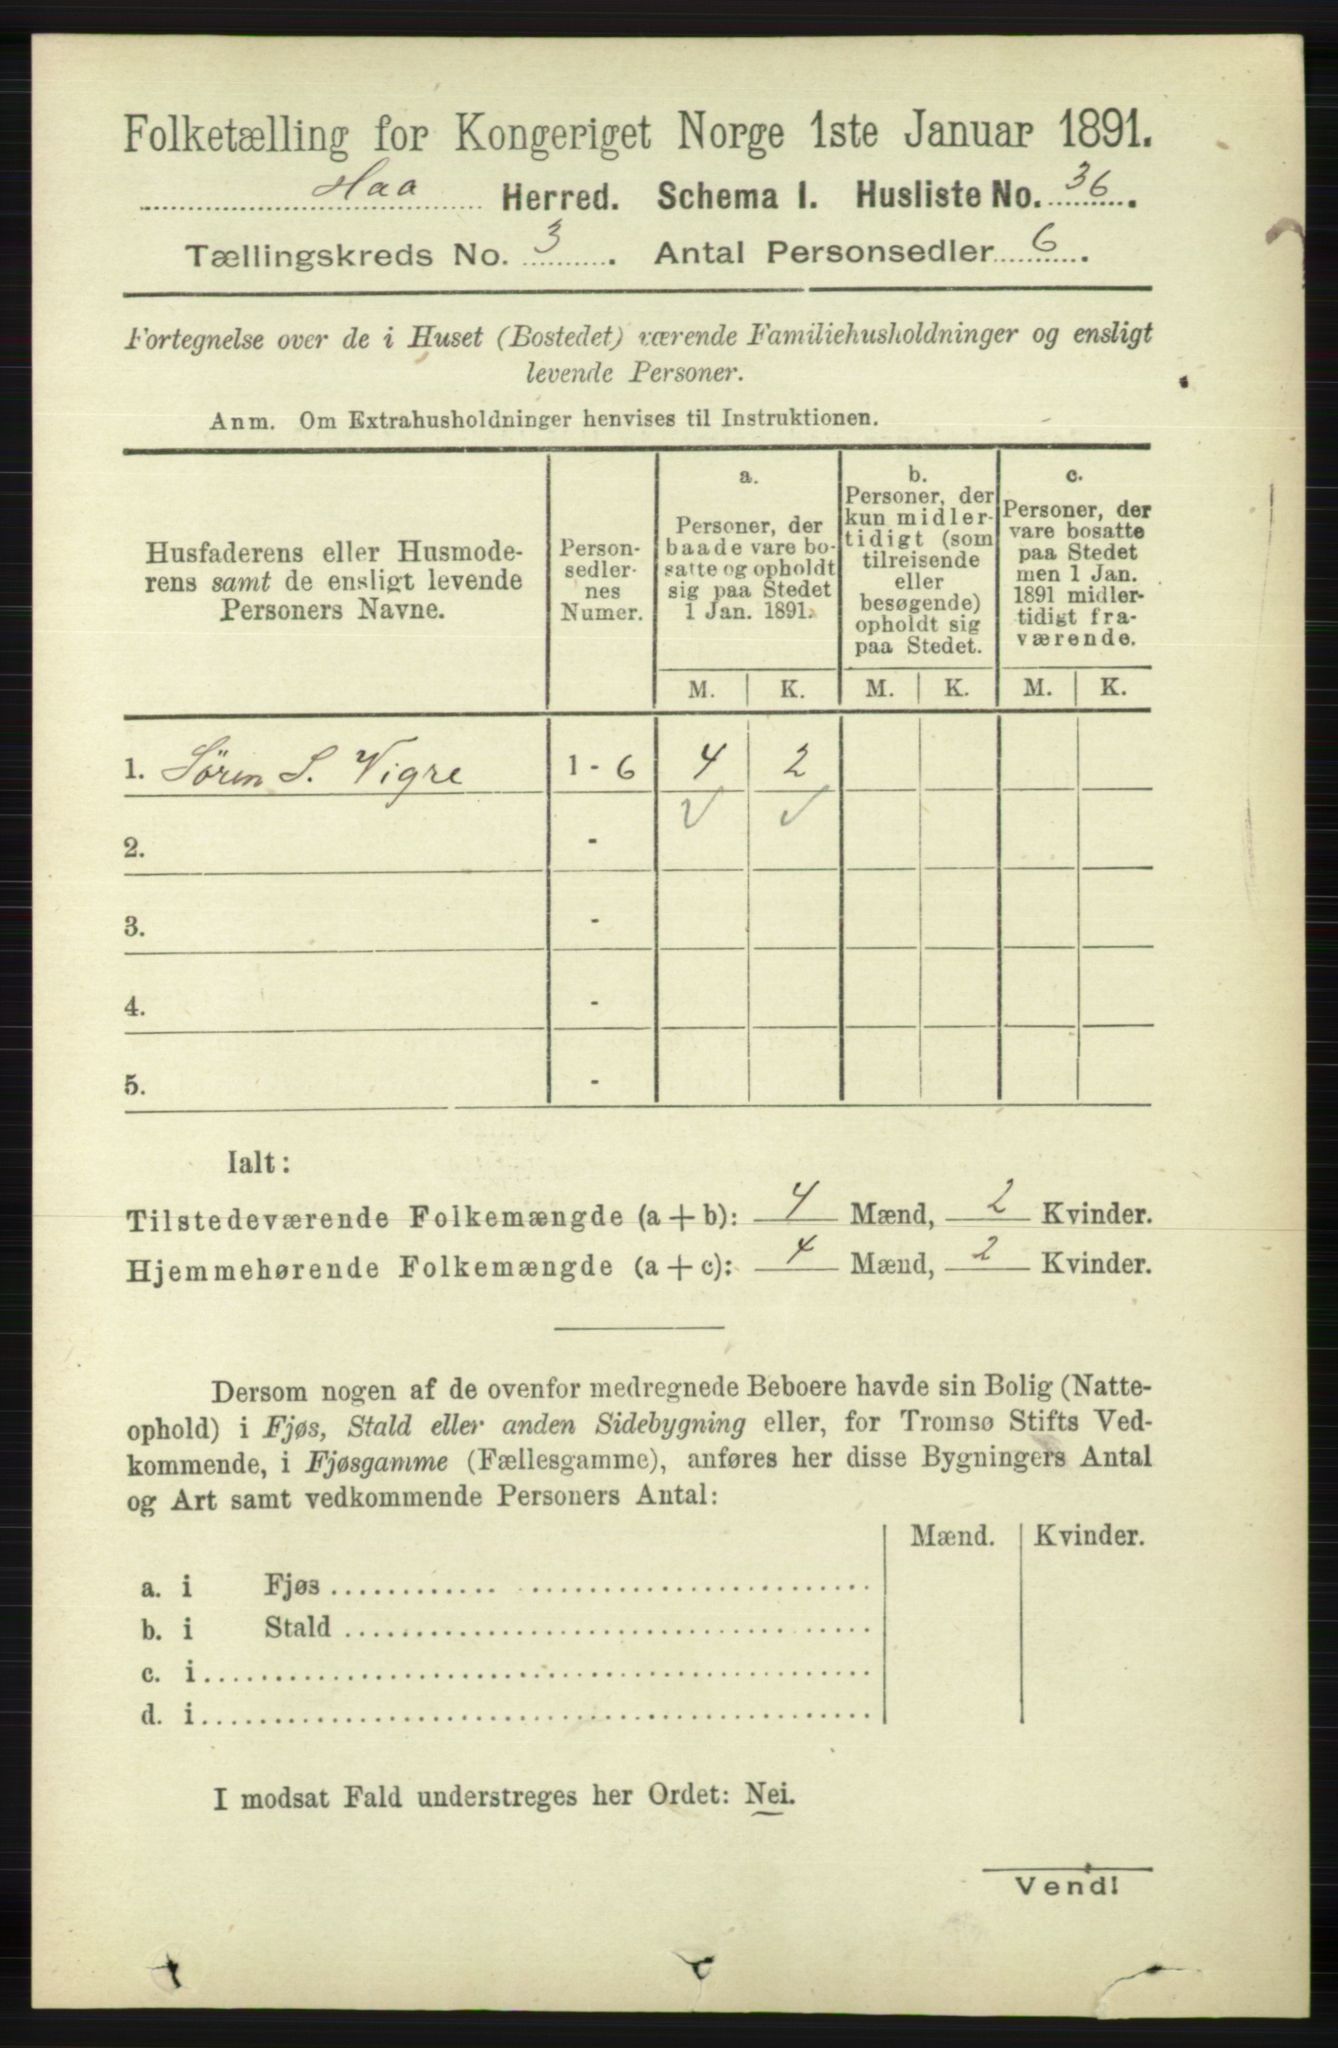 Folketælling for Kongeriget Norge 1ste Januar 1891.
Haa Herred. Schema I. Husliste No. 36.
Tællingskreds No. 3. Antal Personsedler 6.
Fortegnelse over de i Huset (Bostedet) værende Familiehusholdninger og ensligt
levende Personer.
Anm. Om Extrahusholdninger henvises til Instruktionen.
Husfaderens eller Husmode-
rens samt de ensligt levende
Personers Navne.
Person-
sedler-
nes
Numer.
a.
Personer, der
baade vare bo-
satte og opholdt
sig paa Stedet
1 Jan. 1891.
b.
Personer, der
kun midler-
tidigt (som
tilreisende
eller
besøgende)
opholdt sig
paa Stedet.
c.
Personer, der
vare bosatte
paa Stedet
men 1 Jan.
1891 midler-
tidigt fra-
værende.
M. K. M. K. M. K.
1. Sören S. Vigre 1 - 6 4 2
2. -
3. -
4. -
5. -
Ialt:
Tilstedeværende Folkemængde (a + b): 4 Mænd, 2 Kvinder.
Hjemmehørende Folkemængde (a + c): 4 Mænd, 2 Kvinder.
Dersom nogen af de ovenfor medregnede Beboere havde sin Bolig (Natte-
ophold) i Fjøs, Stald eller anden Sidebygning eller, for Tromsø Stifts Ved-
kommende, i Fjøsgamme (Fællesgamme), anføres her disse Bygningers Antal
og Art samt vedkommende Personers Antal:
Mænd. Kvinder.
a. i Fjøs
b. i Stald
c. i
d. i
I modsat Fald understreges her Ordet: Nei.
Vend!